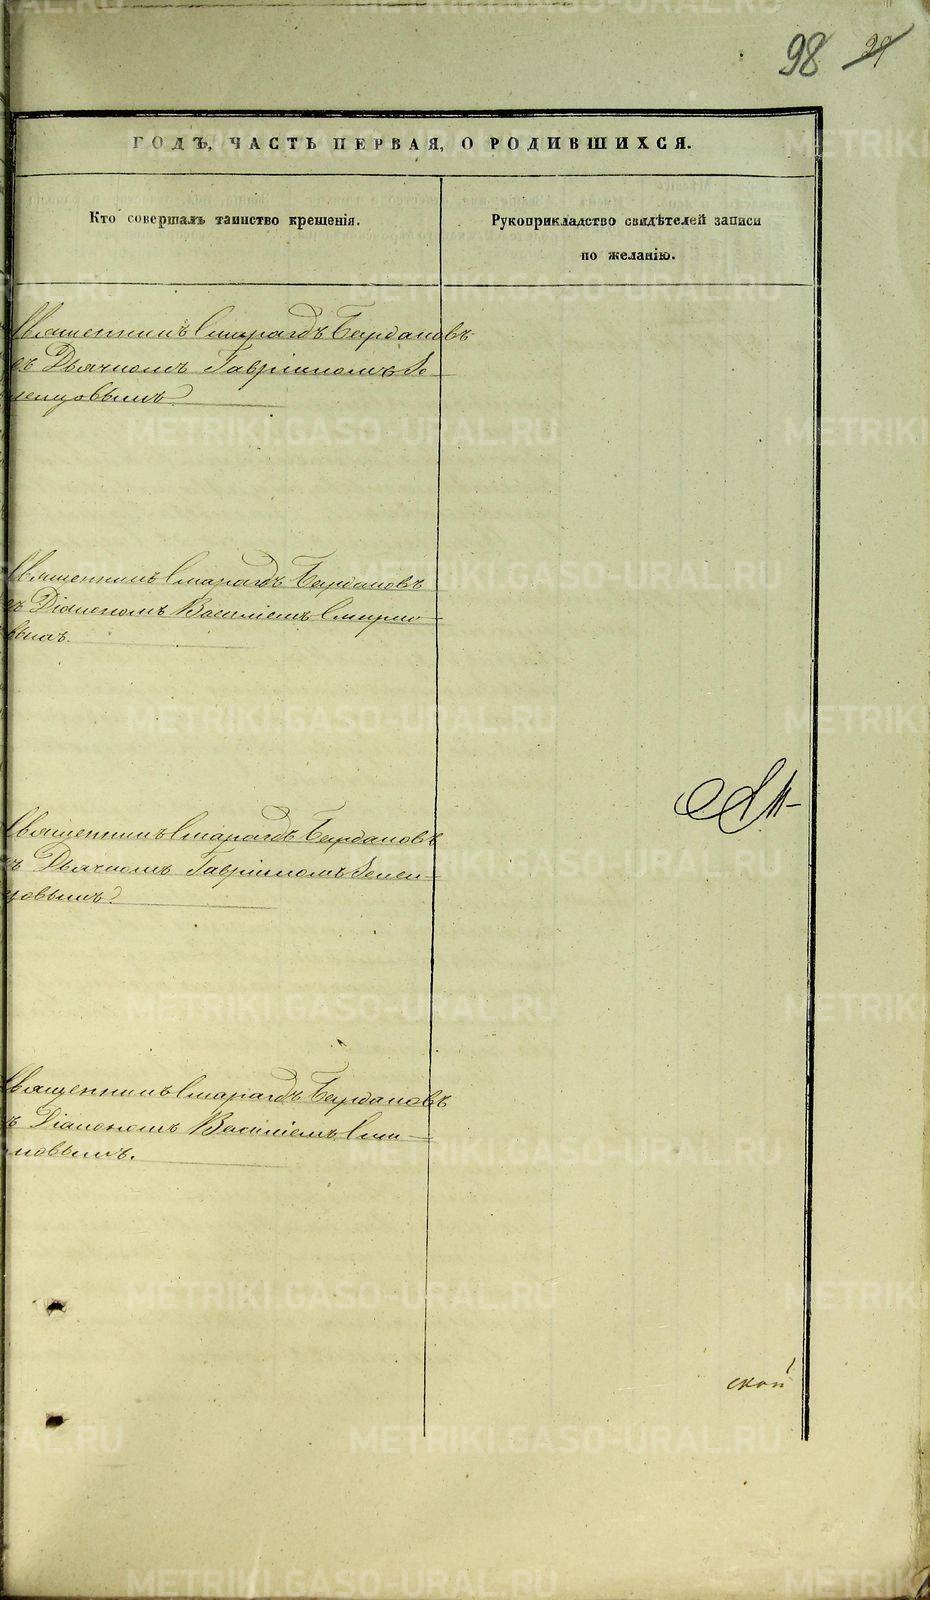 98 29
ГОДЪ, ЧАСТЬ ПЕРВАЯ, О РОДИВШИХСЯ.
Кто совершалъ таинство крещенія.
Рукоприкладство свидѣтелей записи
по желанію.
Священникъ Смарагдъ Бардановъ
съ Дьячкомъ Гавріиломъ Се
ленцовымъ
Священникъ Смарагдъ Бардановъ
съ Діакономъ Василіемъ Смирно
вымъ.
Священникъ Смарагдъ Бардановъ
съ Дьячкомъ Гавріиломъ Селен
цовымъ
Священникъ Смарагдъ Бардановъ
съ Діакономъ Василіемъ
новымъ.
ской
METRIKI.GASO-URAL.RU